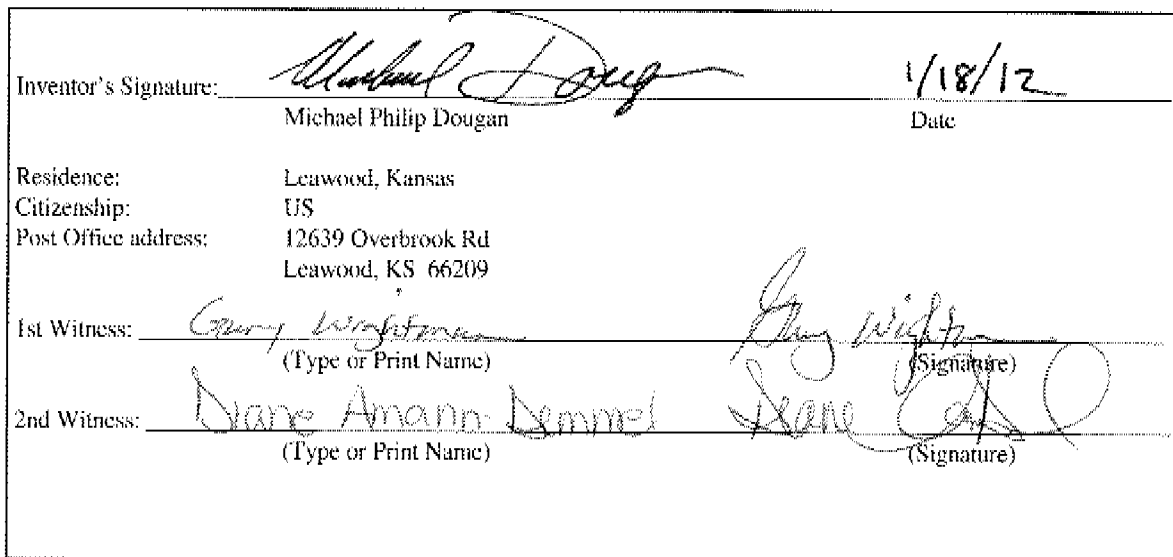 Inventor's Signature: Michael Dougan 1/18/12
Michael Philip Dougan Date
Residence: Leawood, Kansas
Citizenship: US
Post Office address: 12639 Overbrook Rd
Leawood, KS 66209
1st Witness: Gary Wightman Gary Wightman
(Type or Print Name) (Signature)
2nd Witness: Diane Amann-Demmel Diane
(Type or Print Name) (Signature)